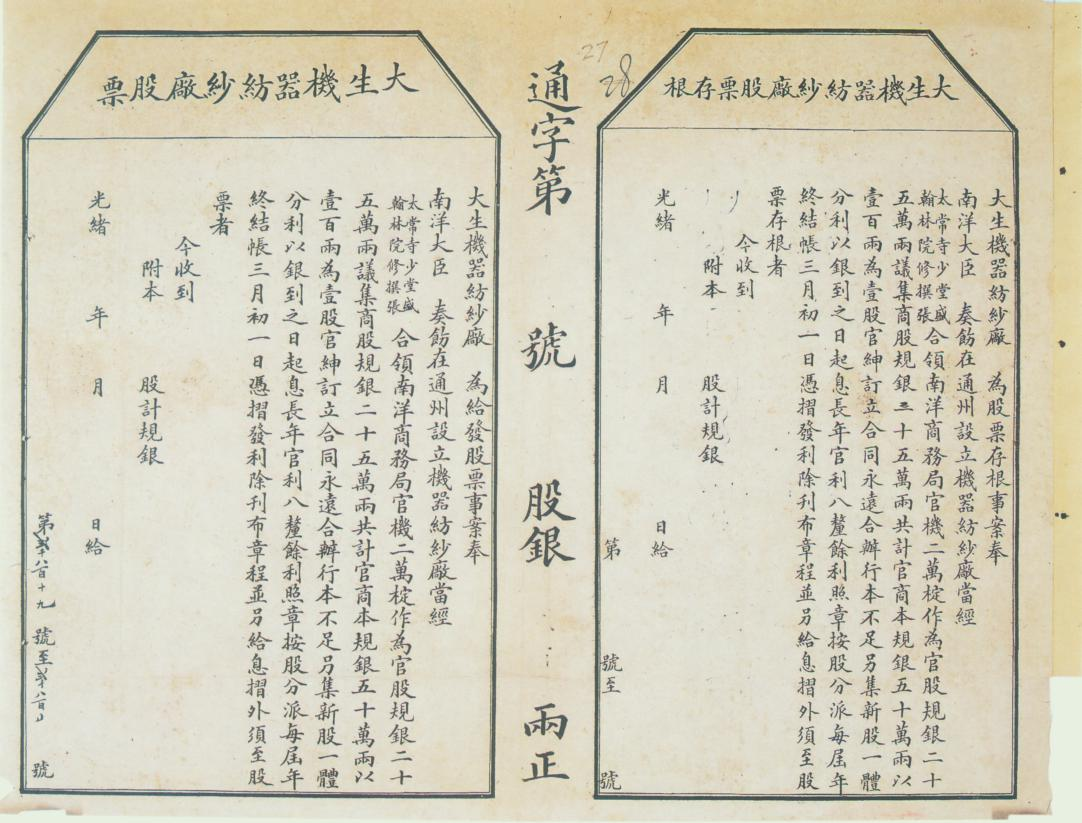 大生機器紡紗廠股票存根
大生機器紡紗廠 為股票存根事案奉
南洋大臣 奏飭在通州設立機器紡紗廠當經
太常寺少堂盛
翰林院修撰張
合領南洋商務局官機二萬椗作為官股規銀二十
五萬兩議集商股規銀三十五萬兩共計官商本規銀五十萬兩以
壹百兩為壹股官紳訂立合同永遠合辦行本不足另集新股一體
分利以銀到之日起息長年官利八釐餘利照章按股分派每屆年
終結帳三月初一日憑摺發利除刊布章程並另給息摺外須至股
票存根者
今收到
附本 股計規銀
光緒 年 月 日給
第 號至 號
27
28
通字第 號 股銀 兩正
大生機器紡紗廠股票
大生機器紡紗廠 為給發股票事案奉
南洋大臣 奏飭在通州設立機器紡紗廠當經
太常寺少堂盛
翰林院修撰張
合領南洋商務局官機二萬椗作為官股規銀二十
五萬兩議集商股規銀二十五萬兩共計官商本規銀五十萬兩以
壹百兩為壹股官紳訂立合同永遠合辦行本不足另集新股一體
分利以銀到之日起息長年官利八釐餘利照章按股分派每屆年
終結帳三月初一日憑摺發利除刊布章程並另給息摺外須至股
票者
今收到
附本 股計規銀
光緒 年 月 日給
第 八百十九 號至 八百 號